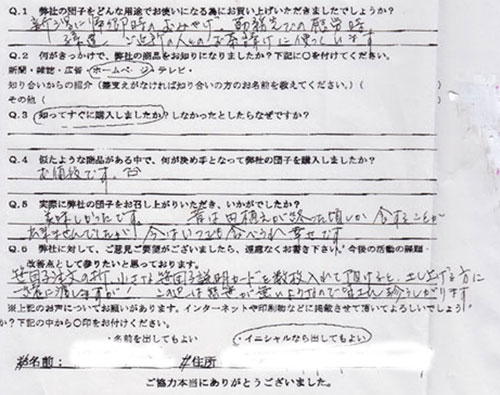 Q.1 弊社の団子をどんな用途でお使いになる為にお買い上げいただきましたでしょうか?
新潟に帰郷時のおみやげ、
ご近所の人とのお茶請けに使っています
Q.2 何がきっかけで、弊社の商品をお知りになりましたか?下記に○を付けてください。
新聞・雑誌・広告・ホームページ・テレビ・
知り合いからの紹介(差支えがなければ知り合いの方のお名前を教えてください。)(
その他(
Q.3 知ってすぐに購入しましたか?しなかったとしたらなぜですか?
Q.4 似たような商品がある中で、何が決め手となって弊社の団子を購入しましたか?
お値段です。
Q.5 実際に弊社の団子をお召し上がりいただき、いかがでしたか?
美味しかったです。 昔は田植えが終った頃しか食すことが
出来ませんでしたが、今はいつでも食べられ幸せです
Q.6 弊社に対して、ご意見ご要望がございましたら、遠慮なくお書き下さい。今後の活動の課題・
改善点として参りたいと思っております。
笹団子注文の折、小さな笹団子説明カードを数枚入れて頂けると、差し上げる方に
一緒に渡しますが! この辺は 皆さん珍しがります
※上記のお声についてお願いがあります。インターネットや印刷物などに掲載させて頂いてよろしいでしょう
か?下記の中から○印をお付けください。
・名前を出してもよい ・イニシャルなら出してもよい
お名前: ご住所
ご協力本当にありがとうございました。